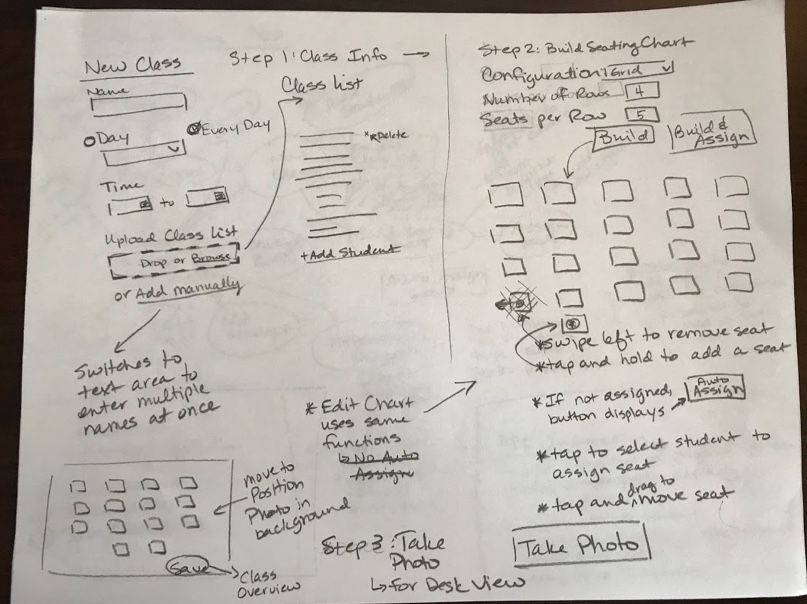 New Class
Name
Day
Every Day
Time
to
Upload Class List
Drop or Browse
or Add manually
Switches to
text area to
enter multiple
names at once
Step 1: Class Info
Class List
x Delete
+ Add Student
Step 2: Build Seating Chart
Configuration: Grid
Number of Rows 4
Seats per Row 5
Build
Build &
Assign
*swipe left to remove seat
*tap and hold to add a seat
*If not assigned,
button displays
Auto
Assign
*tap to select student to
assign seat
*tap and drag to move seat
Take Photo
*Edit Chart
uses same
functions
No Auto
Assign
move to
Position
Photo in
background
Save
Class
Overview
Step 3: Take
Photo
for Desk View